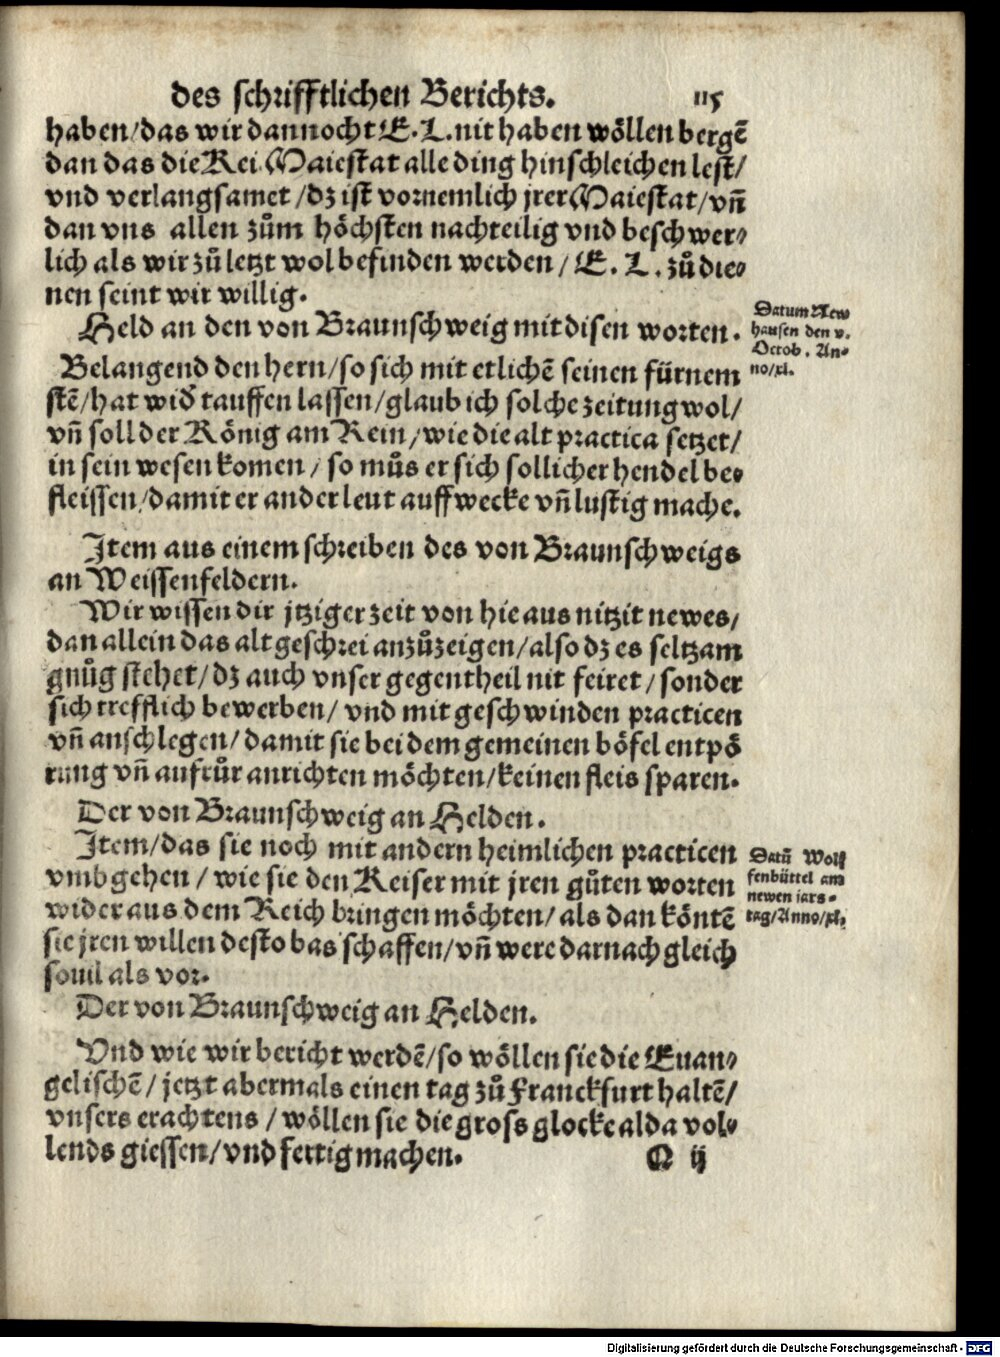 des schrifftlichen Berichts. 115
haben/das wir dannocht E. L. nit haben wöllen bergē
dan das die Kei. Maiestat alle ding hinschleichen lest/
vnd verlangsamet/dz ist vornemlich jrer Maiestat/vñ
dan vns allen zům höchsten nachteilig vnd beschwer⸗
lich als wir zů letzt wol befinden werden/ E. L. zů die⸗
nen seint wir willig.
Held an den von Braunschweig mit disen worten.
Datum New
hausen den v.
Octob. An⸗
no/xl.
Belangend den hern/so sich mit etlichē seinen fürnem
stē/hat wid' tauffen lassen/glaub ich solche zeitung wol/
vñ soll der König am Rein/wie die alt practica setzet/
in sein wesen komen/ so můs er sich sollicher hendel be⸗
fleissen/damit er ander leut auffwecke vñ lustig mache.
Item aus einem schreiben des von Braunschweigs
an Weissenfeldern.
Wir wissen dir jtziger zeit von hie aus nitzit newes/
dan allein das alt geschrei anzůzeigen/also dz es seltzam
gnůg stehet/dz auch vnser gegentheil nit feiret/sonder
sich trefflich bewerben/ vnd mit geschwinden practicen
vñ anschlegen/damit sie bei dem gemeinen böfel entpö
rung vñ aufrůr anrichten möchten/keinen fleis sparen.
Der von Braunschweig an Helden.
Item/das sie noch mit andern heimlichen practicen
vmbgehen/ wie sie den Keiser mit jren gůten worten
wider aus dem Reich bringen möchten/als dan köntē
sie jren willen desto bas schaffen/vñ were darnach gleich
souil als vor.
Datū Wolf
fenbüttel am
newen iars⸗
tag/Anno/xl.
Der von Braunschweig an Helden.
Vnd wie wir bericht werdē/so wöllen sie die Euan⸗
gelischē/ jetzt abermals einen tag zů Franckfurt haltē/
vnsers erachtens/ wöllen sie die gross glocke alda vol⸗
lends giessen/vnd fertig machen.
Q ij
Digitalisierung gefördert durch die Deutsche Forschungsgemeinschaft - DFG